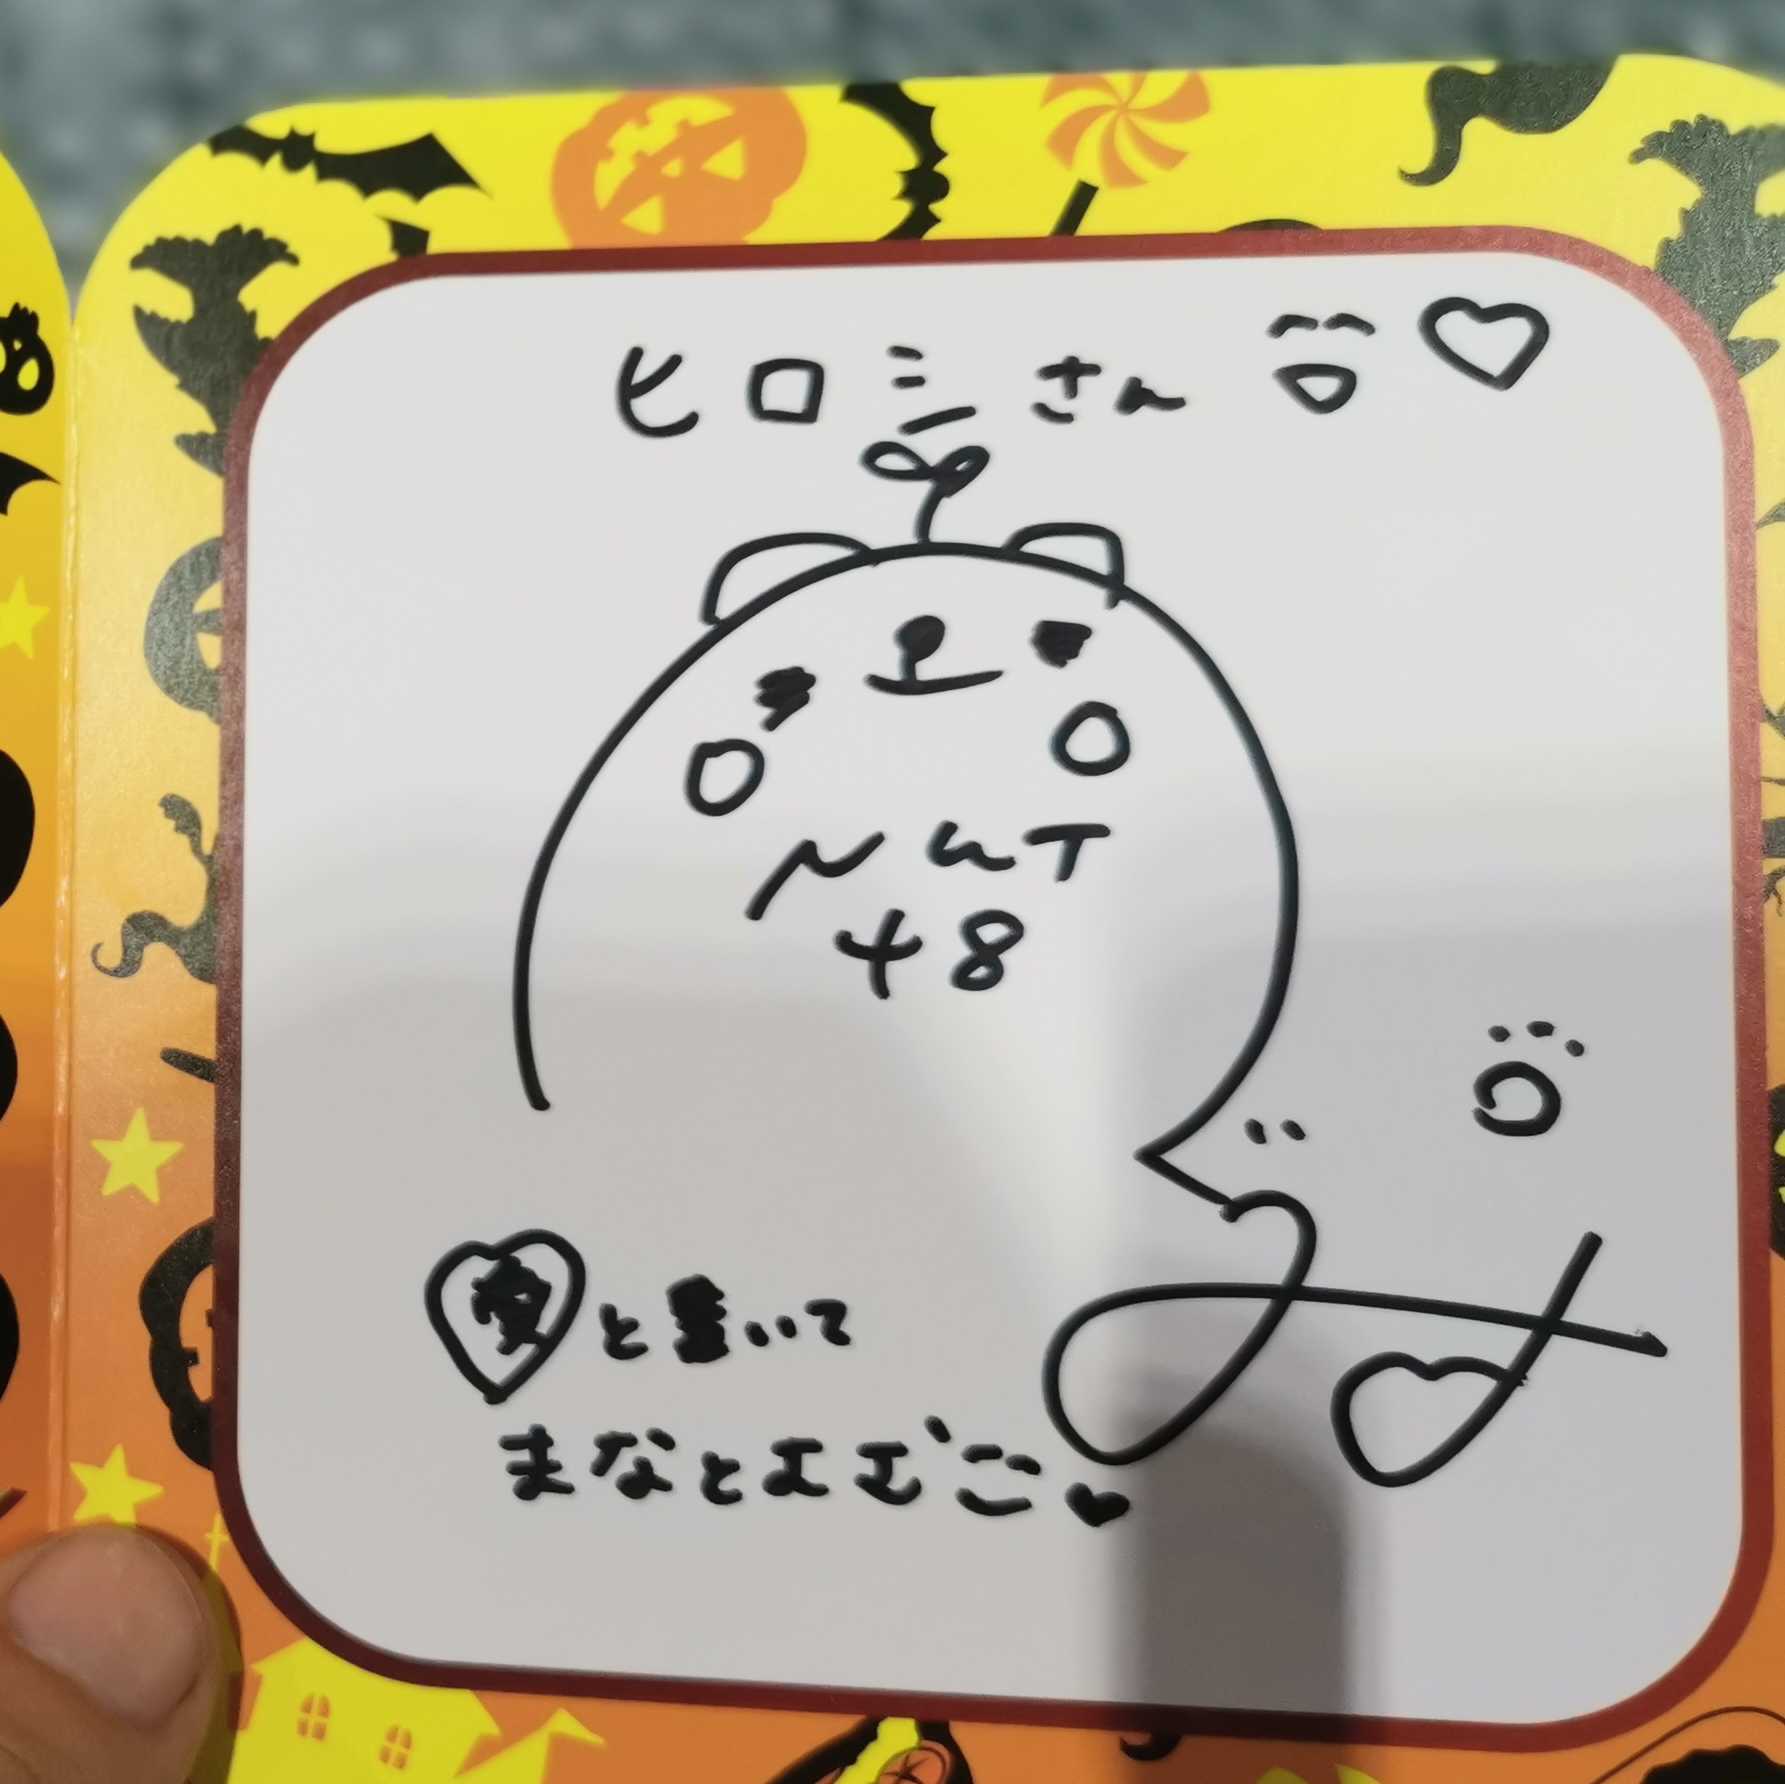 ヒロシさん
NGT
48
愛と書いて
まなとよむご